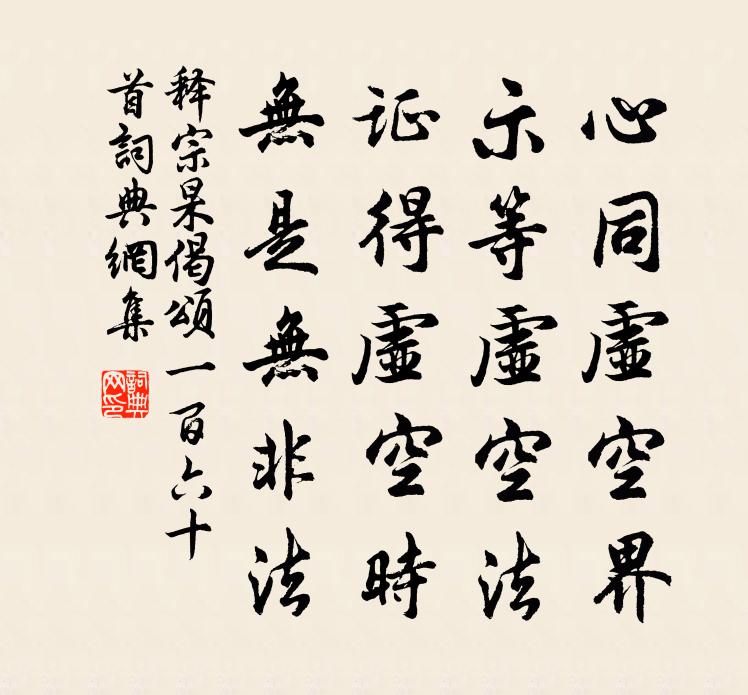 心同虛空界
示等虛空法
证得虛空時
無是無非法
释宗杲偈頌一百六十
首詞典網集
詞典
网印